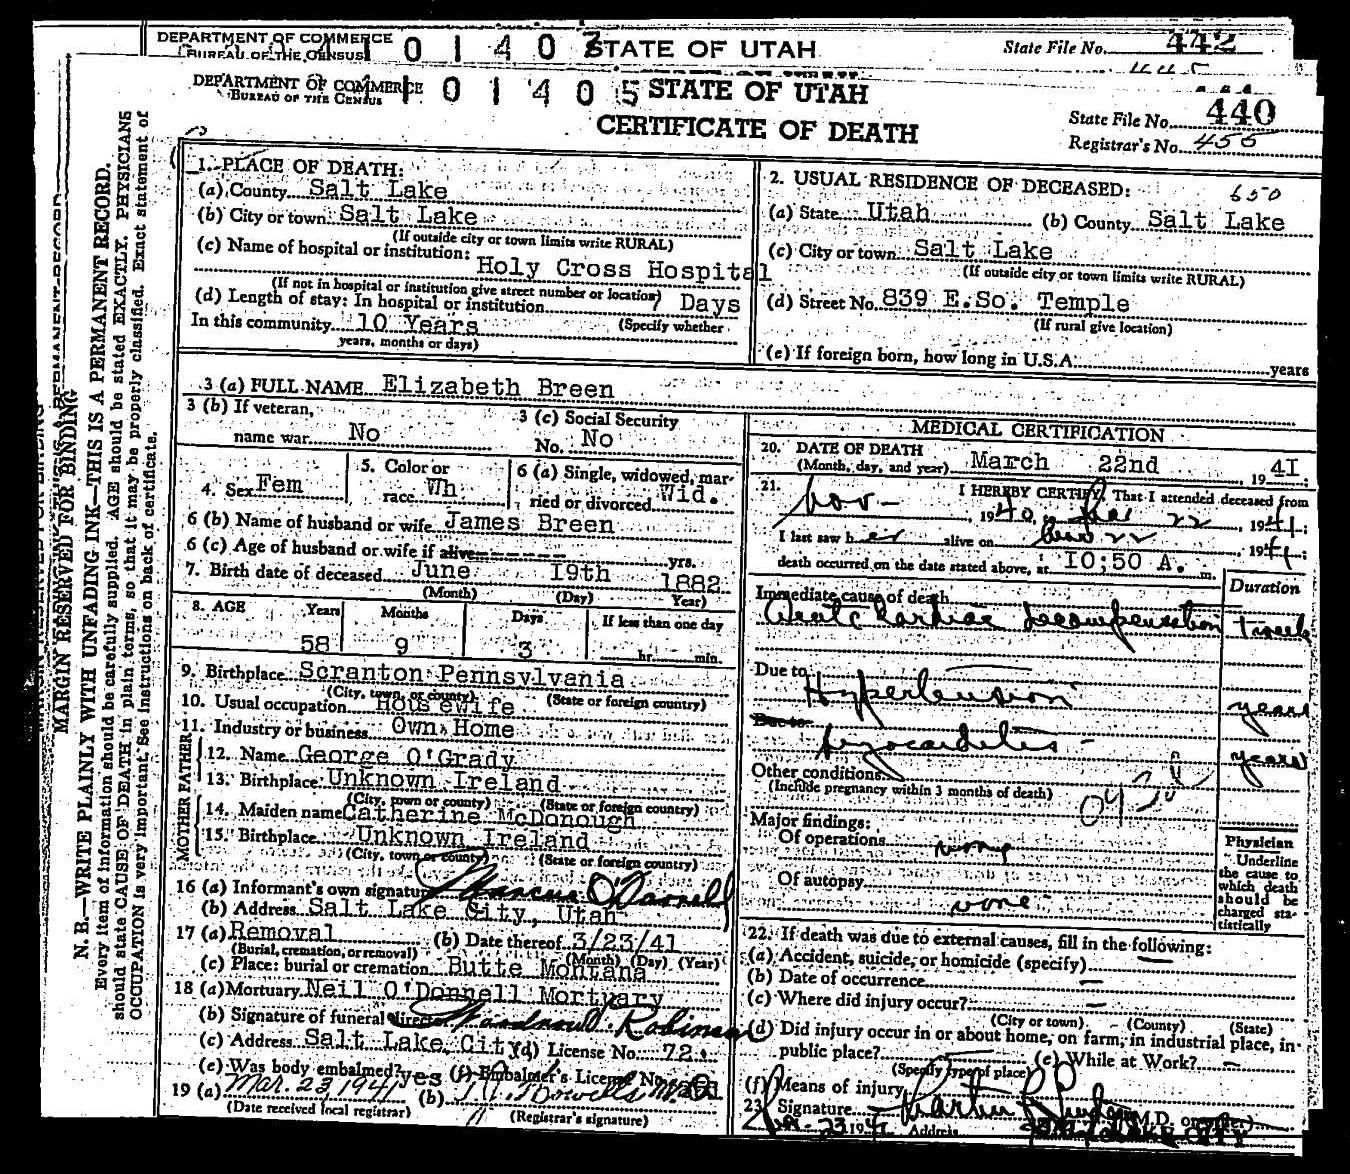 DEPARTMENT OF COMMERCE
BUREAU OF THE CENSUS
STATE OF UTAH
State File No. 442
DEPARTMENT OF COMMERCE
BUREAU OF THE CENSUS
STATE OF UTAH
CERTIFICATE OF DEATH
State File No. 440
Registrar's No. 455
MARGIN RESERVED FOR BINDING
N. B.—WRITE PLAINLY WITH UNFADING INK—THIS IS A PERMANENT RECORD.
Every item of information should be carefully supplied. AGE should be stated EXACTLY. PHYSICIANS
should state CAUSE OF DEATH in plain terms, so that it may be properly classified. Exact statement of
OCCUPATION is very important. See instructions on back of certificate.
1. PLACE OF DEATH:
(a) County Salt Lake
(b) City or town Salt Lake
(If outside city or town limits write RURAL)
(c) Name of hospital or institution:
Holy Cross Hospital
(If not in hospital or institution give street number or location)
(d) Length of stay: In hospital or institution 7 Days
In this community 10 Years (Specify whether
years, months or days)
2. USUAL RESIDENCE OF DECEASED:
650
(a) State Utah (b) County Salt Lake
(c) City or town Salt Lake
(If outside city or town limits write RURAL)
(d) Street No. 839 E.So. Temple
(If rural give location)
(e) If foreign born, how long in U.S.A. years
3 (a) FULL NAME Elizabeth Breen
3 (b) If veteran, name war No
3 (c) Social Security No. No
4. Sex Fem
5. Color or race Wh.
6 (a) Single, widowed, married or divorced Wid.
6 (b) Name of husband or wife James Breen
6 (c) Age of husband or wife if alive yrs.
7. Birth date of deceased June 19th 1882
(Month) (Day) (Year)
8. AGE Years Months Days If less than one day
58 9 3 hr. min.
9. Birthplace Scranton Pennsylvania
(City, town, or county) (State or foreign country)
10. Usual occupation Housewife
11. Industry or business Own Home
FATHER
12. Name George O'Grady
13. Birthplace Unknown Ireland
(City, town or county) (State or foreign country)
MOTHER
14. Maiden name Catherine McDonough
15. Birthplace Unknown Ireland
(City, town or county) (State or foreign country)
16 (a) Informant's own signature
(b) Address Salt Lake City, Utah
17 (a) Removal (b) Date thereof 3/23/41
(Burial, cremation, or removal) (Month) (Day) (Year)
(c) Place: burial or cremation Butte Montana
18 (a) Mortuary Neil O'Donnell Mortuary
(b) Signature of funeral director
(c) Address Salt Lake City (d) License No. 72
(e) Was body embalmed? yes (f) Embalmer's License No.
19 (a) Mar. 23, 1941 (b)
(Date received local registrar) (Registrar's signature)
MEDICAL CERTIFICATION
20. DATE OF DEATH
(Month, day, and year) March 22nd, 1941;
21. I HEREBY CERTIFY, That I attended deceased from
Nov - , 1940, to Mar 22, 1941;
I last saw her alive on Mar 22, 1941;
death occurred on the date stated above, at 10:50 A. m.
Immediate cause of death Duration
Acute Cardiac Decompensation 1 week
Due to
Hypertension years
Due to
Myocarditis - years
Other conditions
(Include pregnancy within 3 months of death)
Major findings:
Of operations none
Of autopsy none
Physician
Underline
the cause to
which death
should be
charged sta-
tistically
22. If death was due to external causes, fill in the following:
(a) Accident, suicide, or homicide (specify) —
(b) Date of occurrence —
(c) Where did injury occur? —
(City or town) (County) (State)
(d) Did injury occur in or about home, on farm, in industrial place, in
public place? (e) While at Work? —
(Specify type of place)
(f) Means of injury
23. Signature M.D. or other
Mar. 23 1941 Address